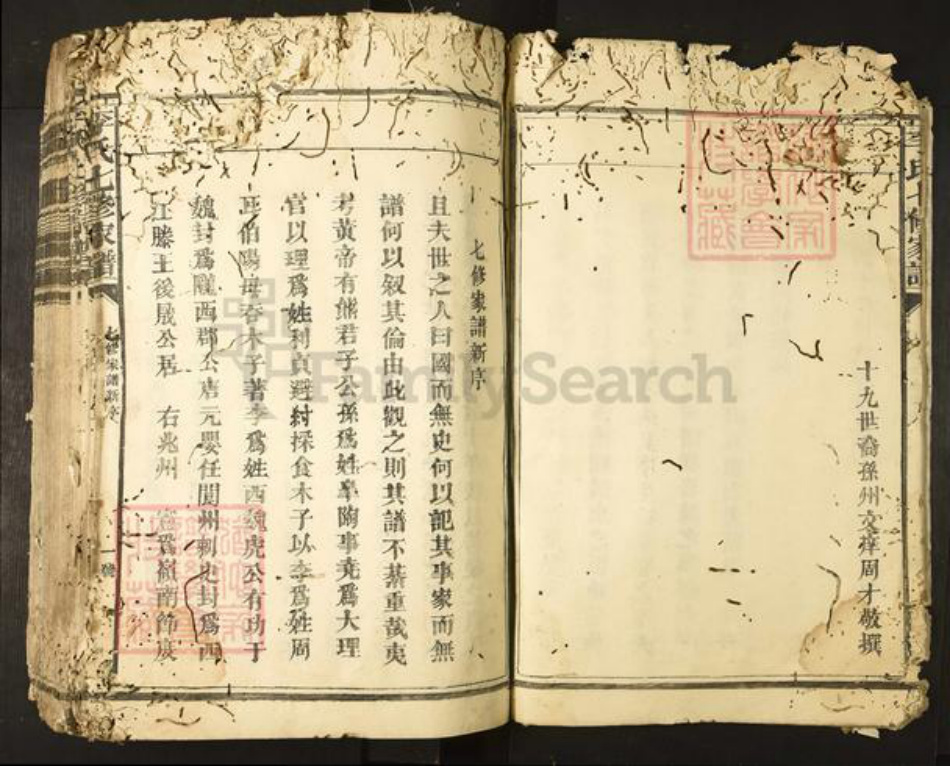 李氏七修家譜
十九世裔孫州文庠周才敬撰
七修家譜新序
且夫世之人曰國而無史何以記其事家而無
譜何以叙其倫由此觀之則其譜不綦重哉夷
考黃帝有熊君子公孫爲姓臯陶事堯爲大理
官以理爲姓利貞避紂採食木子以李爲姓周
耳伯陽母吞木子著李爲姓西魏虎公有功于
魏封爲隴西郡公唐元嬰任閬州刺史封爲西
江滕王後晟公居 右兆州 爲嶺南節度
李氏七修家譜
七修家譜新序
一號
FamilySearch